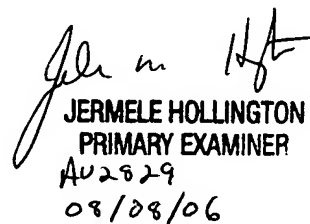 JERMELE HOLLINGTON
PRIMARY EXAMINER
AU2829
08/08/06